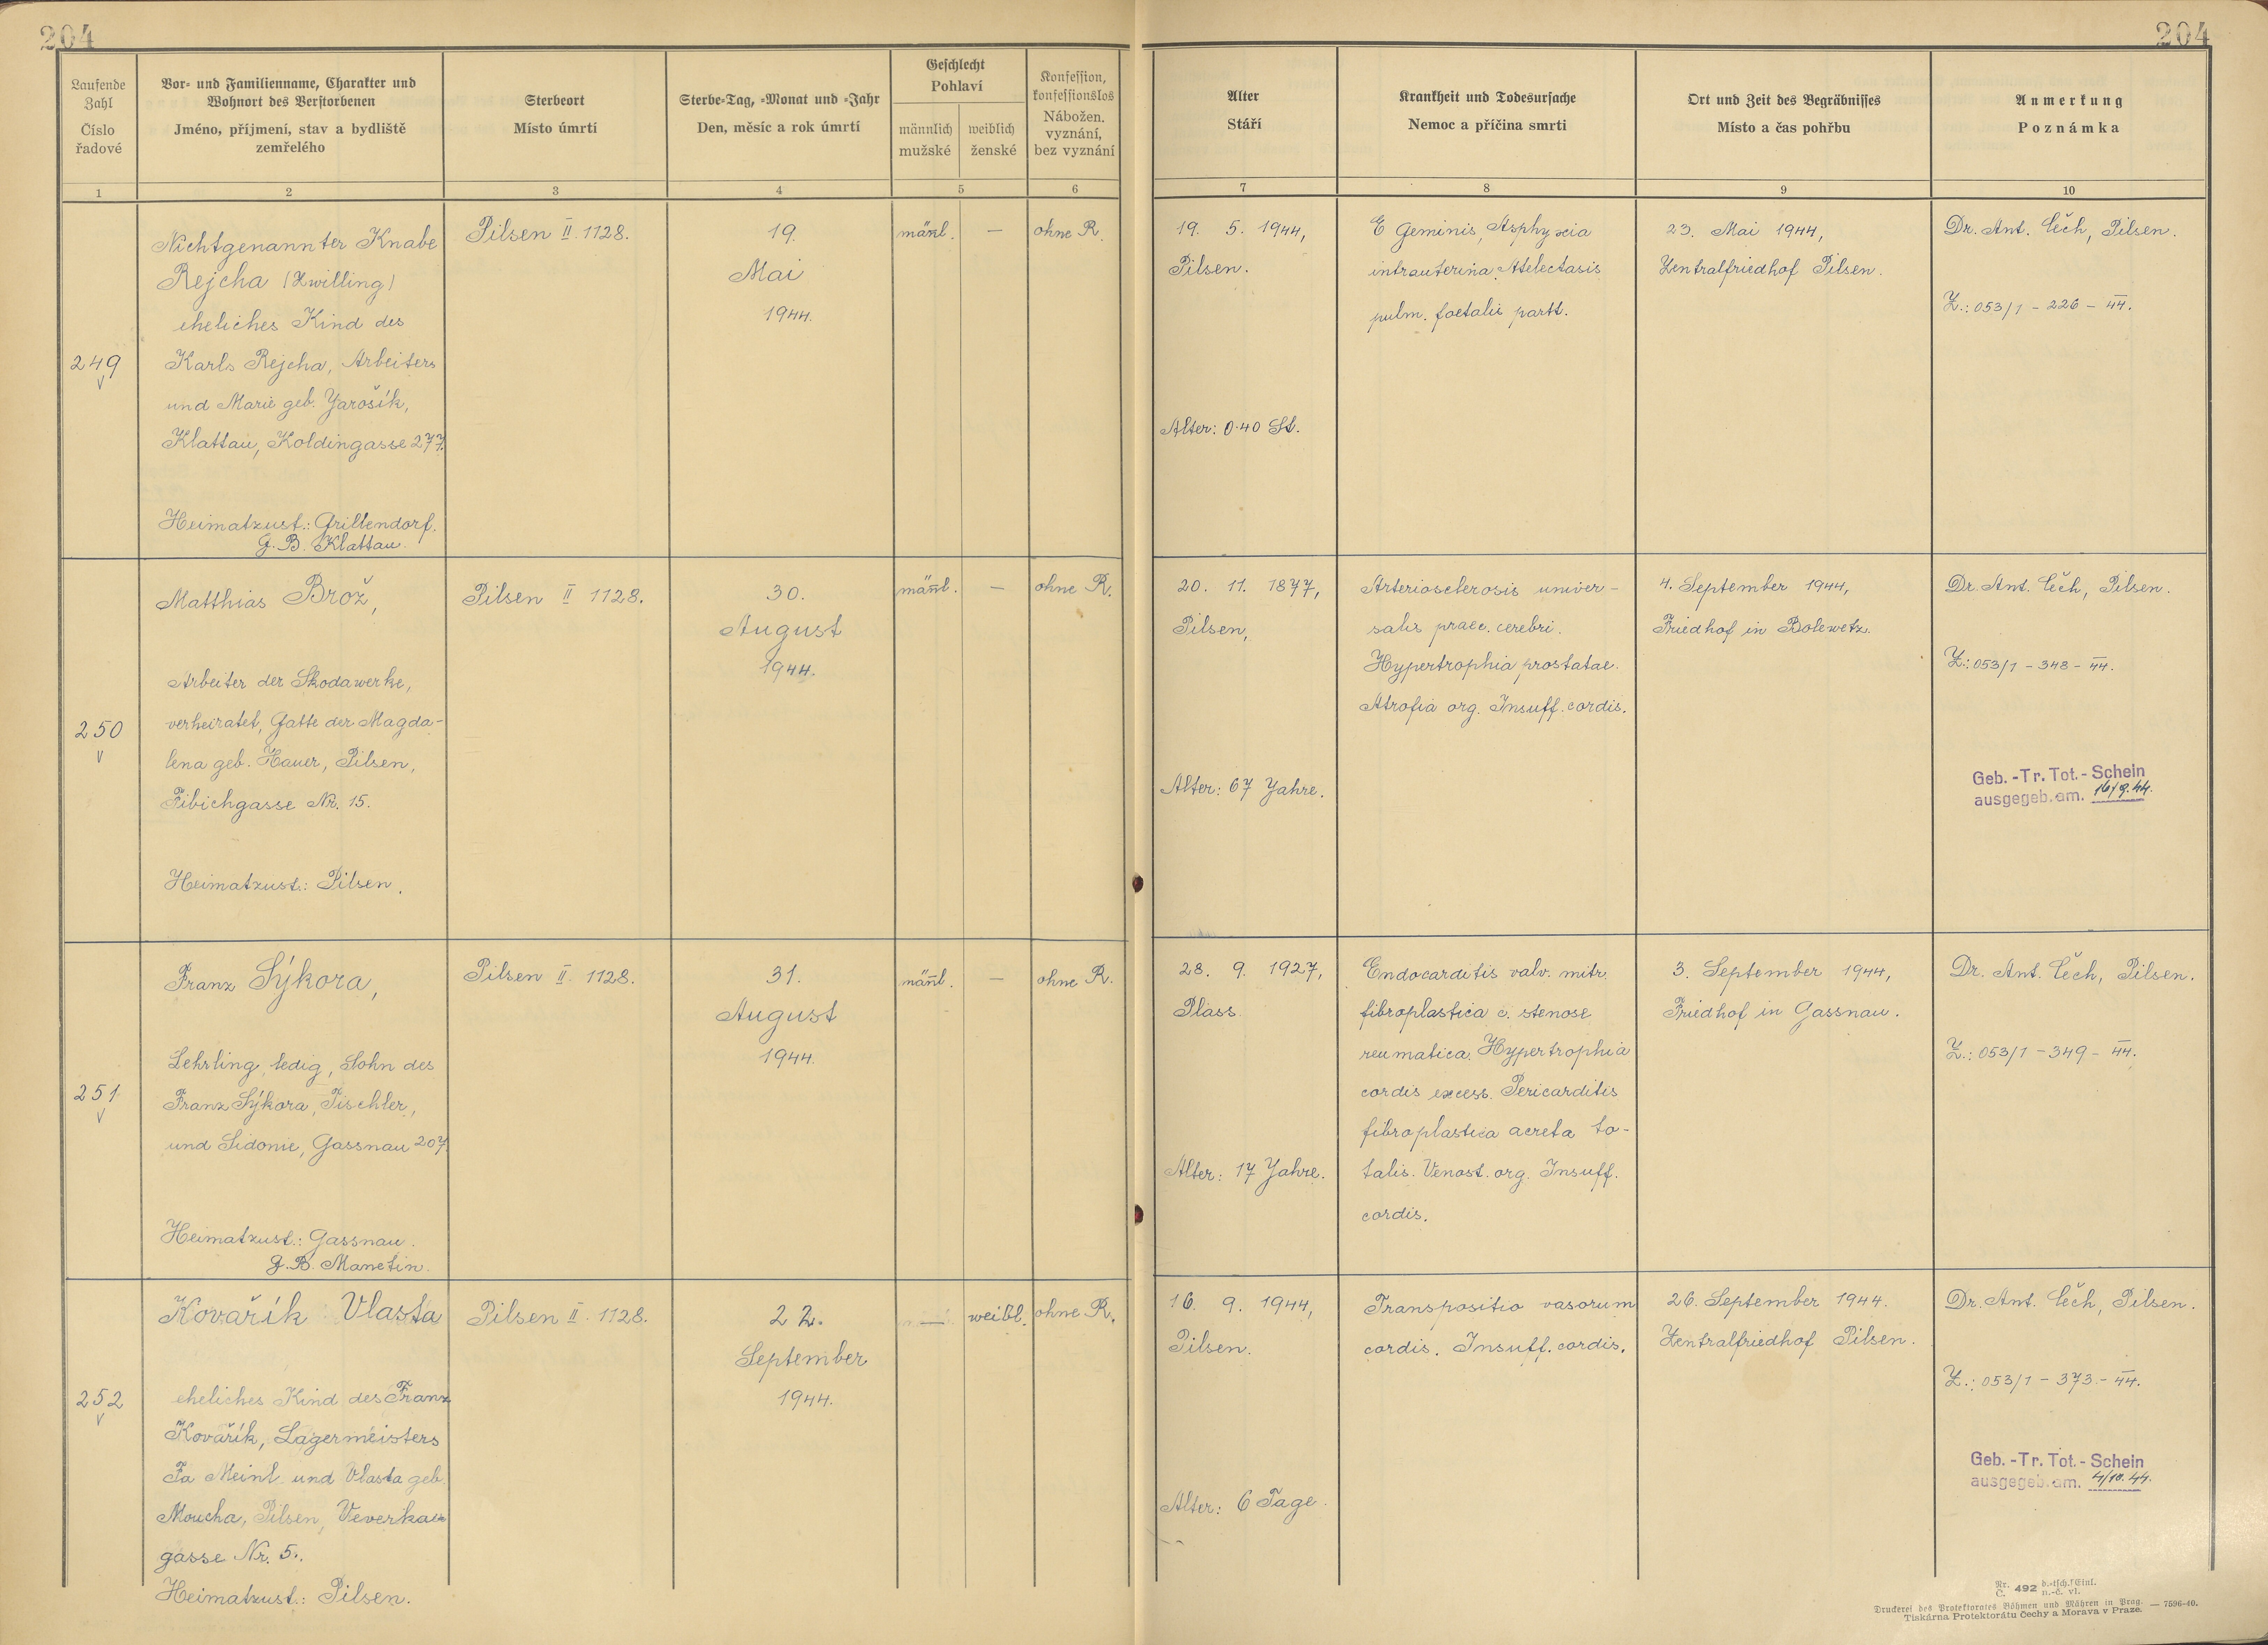 204
204
Laufende Zahl
Číslo řadové
Vor- und Familienname, Charakter und
Wohnort des Verstorbenen
Jméno, příjmení, stav a bydliště
zemřelého
Sterbeort
Místo úmrtí
Sterbe-Tag, -Monat und -Jahr
Den, měsíc a rok úmrtí
Geschlecht
Pohlaví
männlich
mužské
weiblich
ženské
Konfession,
konfessionslos
Nábožen.
vyznání,
bez vyznání
Alter
Stáří
Krankheit und Todesursache
Nemoc a příčina smrti
Ort und Zeit des Begräbnisses
Místo a čas pohřbu
Anmerkung
Poznámka
1
2
3
4
5
6
7
8
9
10
249
Nichtgenannter Knabe
Rejcha (Zwilling)
eheliches Kind des
Karls Rejcha, Arbeiters
und Marie geb. Yarošík,
Klattau, Koldingasse 277.
Heimatzust.: Grillendorf.
G.B. Klattau.
Pilsen II. 1128.
19.
Mai
1944.
männl.
—
ohne R.
19. 5. 1944,
Pilsen.
Alter: 0·40 St.
E Geminis, Asphyxia
intrauterina. Atelectasis
pulm. foetalis partt.
23. Mai 1944,
Zentralfriedhof Pilsen.
Dr. Ant. Čech, Pilsen.
Z.: 053/1 - 226 - 44.
250
Matthias Brož,
Arbeiter der Skodawerke,
verheiratet, Gatte der Magda-
lena geb. Hauer, Pilsen,
Fibichgasse Nr. 15.
Heimatzust.: Pilsen.
Pilsen II 1128.
30.
August
1944.
männl.
—
ohne R.
20. 11. 1877,
Pilsen,
Alter: 67 Yahre.
Arteriosclerosis univer-
salis praec. cerebri.
Hypertrophia prostatae.
Atrofia org. Insuff. cordis.
4. September 1944,
Friedhof in Bolewetz.
Dr. Ant. Čech, Pilsen.
Z.: 053/1 - 348 - 44.
Geb. -Tr. Tot.- Schein
ausgegeb. am. 16/9. 44.
251
Franz Sýkora,
Lehrling, ledig, Sohn des
Franz Sýkora, Tischler,
und Sidonie, Gassnau 207.
Heimatzust.: Gassnau.
G.B. Manetin.
Pilsen II. 1128.
31.
August
1944.
männl.
—
ohne R.
28. 9. 1927,
Plass.
Alter: 17 Yahre.
Endocarditis valv. mitr.
fibroplastica c. stenose
reumatica. Hypertrophia
cordis excess. Pericarditis
fibroplastica acreta to-
talis. Venost. org. Insuff.
cordis.
3. September 1944,
Friedhof in Gassnau.
Dr. Ant. Čech, Pilsen.
Z.: 053/1 - 349 - 44.
252
Kovařík Vlasta
eheliches Kind des Franz
Kovařík, Lagermeisters
Fa Meinl und Vlasta geb.
Moucha, Pilsen, Veverka=
gasse Nr. 5.
Heimatzust.: Pilsen.
Pilsen II. 1128.
22.
September
1944.
—
weibl.
ohne R.
16. 9. 1944,
Pilsen.
Alter: 6 Tage.
Transpositio vasorum
cordis. Insuff. cordis.
26. September 1944.
Zentralfriedhof Pilsen.
Dr. Ant. Čech, Pilsen.
Z.: 053/1 - 373 - 44.
Geb. -Tr. Tot.- Schein
ausgegeb. am. 4/10. 44.
Nr. Č. 492 d.-tsch. Einl. n.-č. vl.
Druckerei des Protektorates Böhmen und Mähren in Prag. — 7596-40.
Tiskárna Protektorátu Čechy a Morava v Praze.